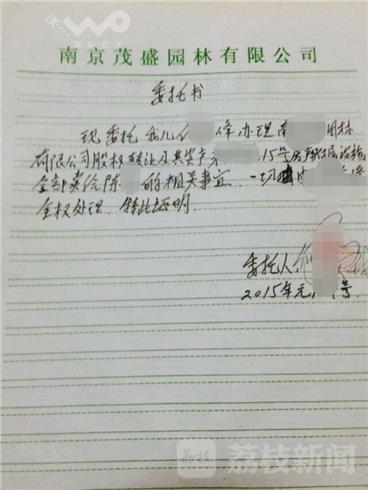 南京茂盛园林有限公司
委托书
现委托我儿 峰办理南 园林
有限公司股权转让及其资产 15号房 附属设施
全部卖给陈 的相关事宜,一切由
全权处理,特此证明.
委托人:
2015年元 号.
荔枝新闻